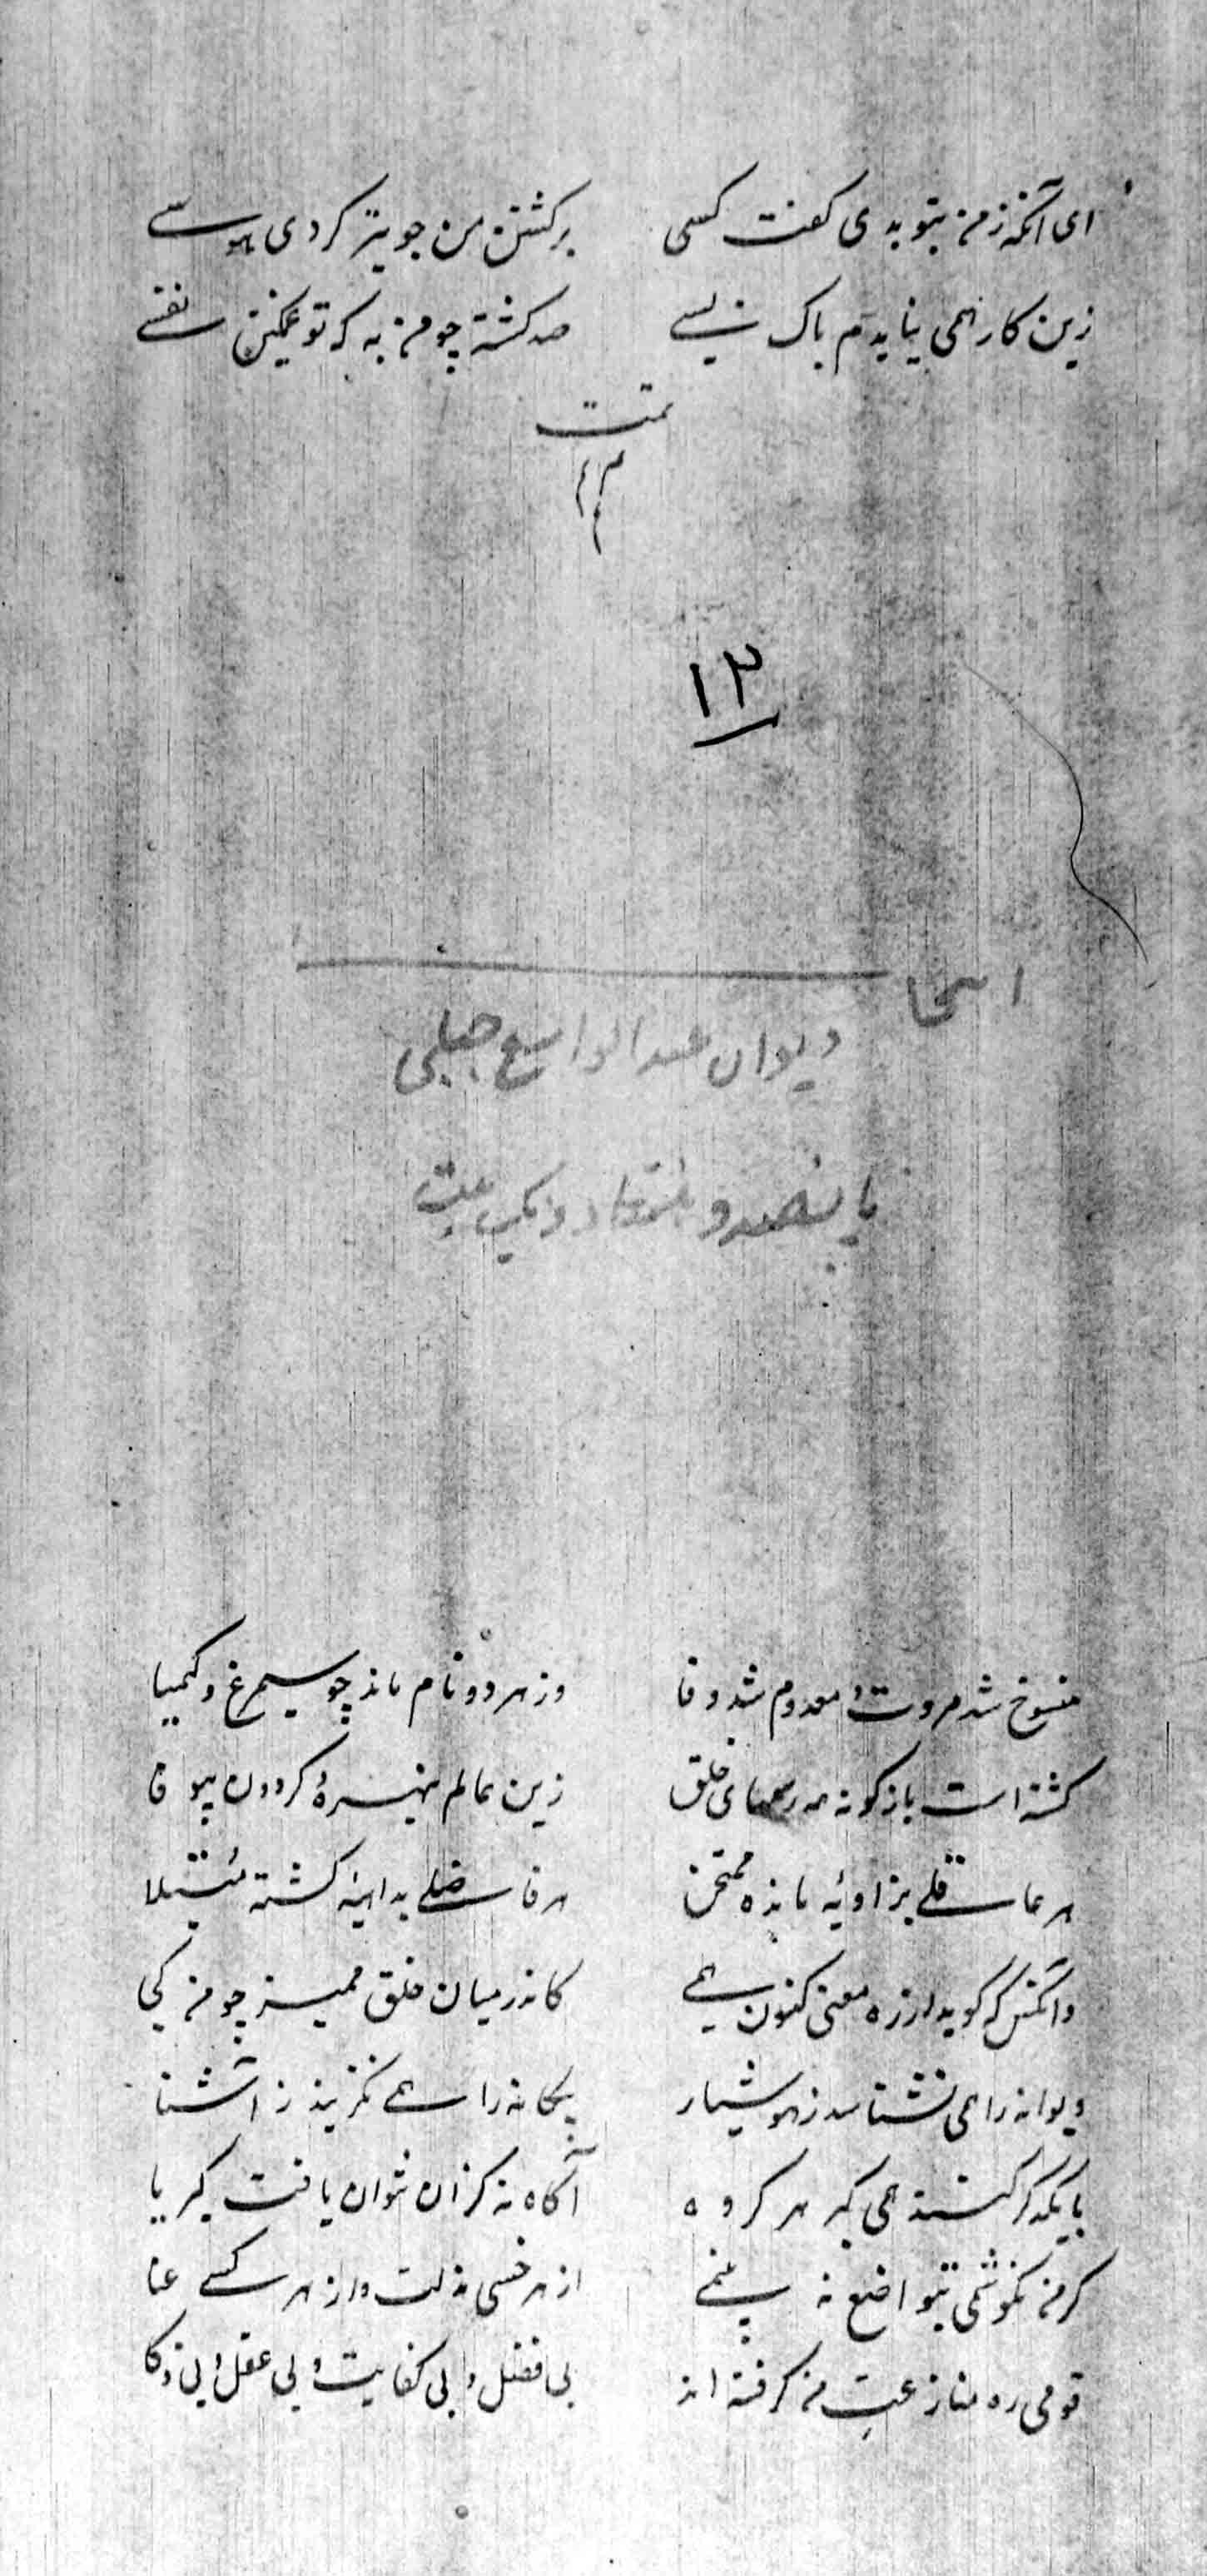 ای آنکه ز من بتو بدی گفت کسی بر کشتن من جو تیز کردی هوسی
زین کار همی نیایدم باک بسی صد کشته چو من به که تو غمگین نفسی
تمت
م م م
۱۳
انتخا
دیوان عبدالواسع جبلی
پانصد و هفتاد و یک بیت
منسوخ شد مروت و معدوم شد وفا وز هر دو نام ماند چو سیمرغ و کیمیا
کشته است باژکونه همه رسمهای خلق زین عالم نبهره و کردون بیوفا
هر عاقلی بزاویه‌ٔ مانده ممتحن هر فاضلی بداهیهٔ کشته مبتلا
وانکس که کوید از ره معنی کنون همی کاندر میان خلق ممیز چو من کی
دیوانه را همی نشناسد ز هوشیار بیکانه را همی نکزیند ز آشنا
با یکدکر کنند همی کبر هر کروه آکاه نه کزان نتوان یافت کبریا
کر من نکوشمی بتواضع نه بینمی از هر خسی مذلت و از هر کسی عنا
قومی ره منازعت من کرفته اند بی فضل و بی کفایت و بی عقل و بی ذکا